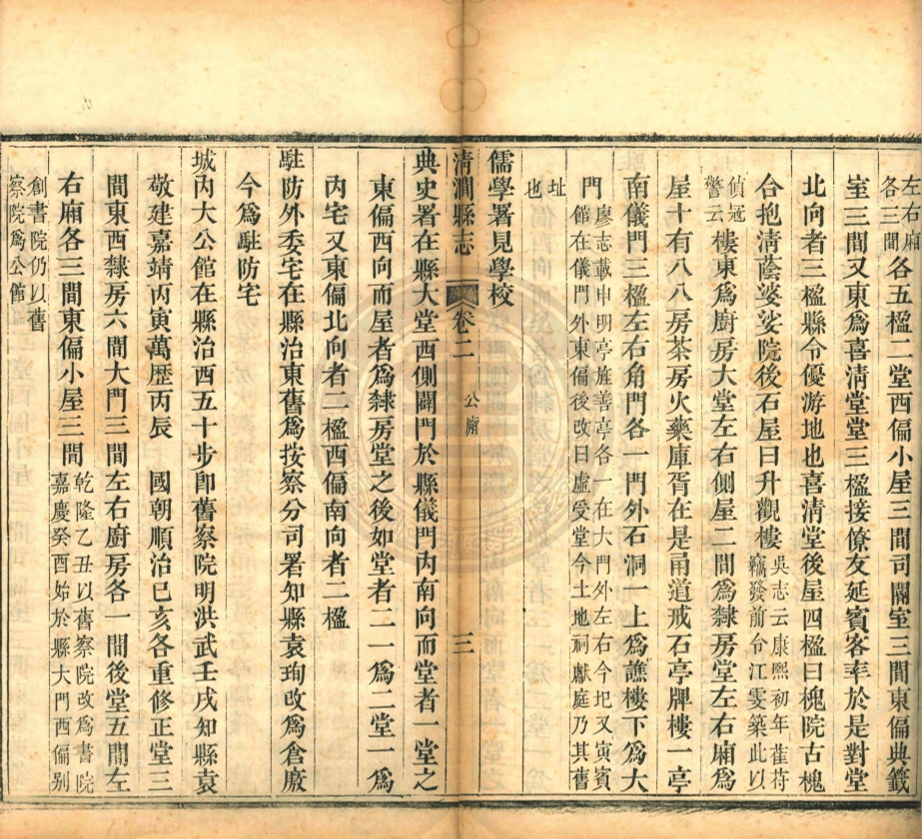 左右廂各三間各五楹二堂西偏小屋三間司閽室三間東偏典籤
室三間又東爲喜清堂堂三楹接僚友延賓客率於是對堂
北向者三楹縣令優游地也喜清堂後屋四楹曰槐院古槐
合抱清蔭婆娑院後石屋曰升觀樓吳志云康熙初年萑苻竊發前令江雯築此以
偵冠警云樓東爲廚房大堂左右側屋二間爲隸房堂左右廂爲
屋十有八八房茶房火藥庫胥在是甬道戒石亭牌樓一亭
南儀門三楹左右角門各一門外石洞一上爲譙樓下爲大
門廖志載申明亭旌善亭各一在大門外左右今圯又寅賓館在儀門外東偏後改曰虛受堂今土地祠獻庭乃其舊
址也
儒學署見學校
清澗縣志 卷二 公廨 三
典史署在縣大堂西側闢門於縣儀門內南向而堂者一堂之
東偏西向而屋者爲隸房堂之後如堂者二一爲二堂一爲
內宅又東偏北向者二楹西偏南向者二楹
駐防外委宅在縣治東舊爲按察分司署知縣袁珣改爲倉廒
今爲駐防宅
城內大公館在縣治西五十步卽舊察院明洪武壬戌知縣袁
敬建嘉靖丙寅萬歷丙辰 國朝順治己亥各重修正堂三
間東西隸房六間大門三間左右廚房各一間後堂五間左
右廂各三間東偏小屋三間乾隆乙丑以舊察院改爲書院嘉慶癸酉始於縣大門西偏别
創書院仍以舊察院爲公館